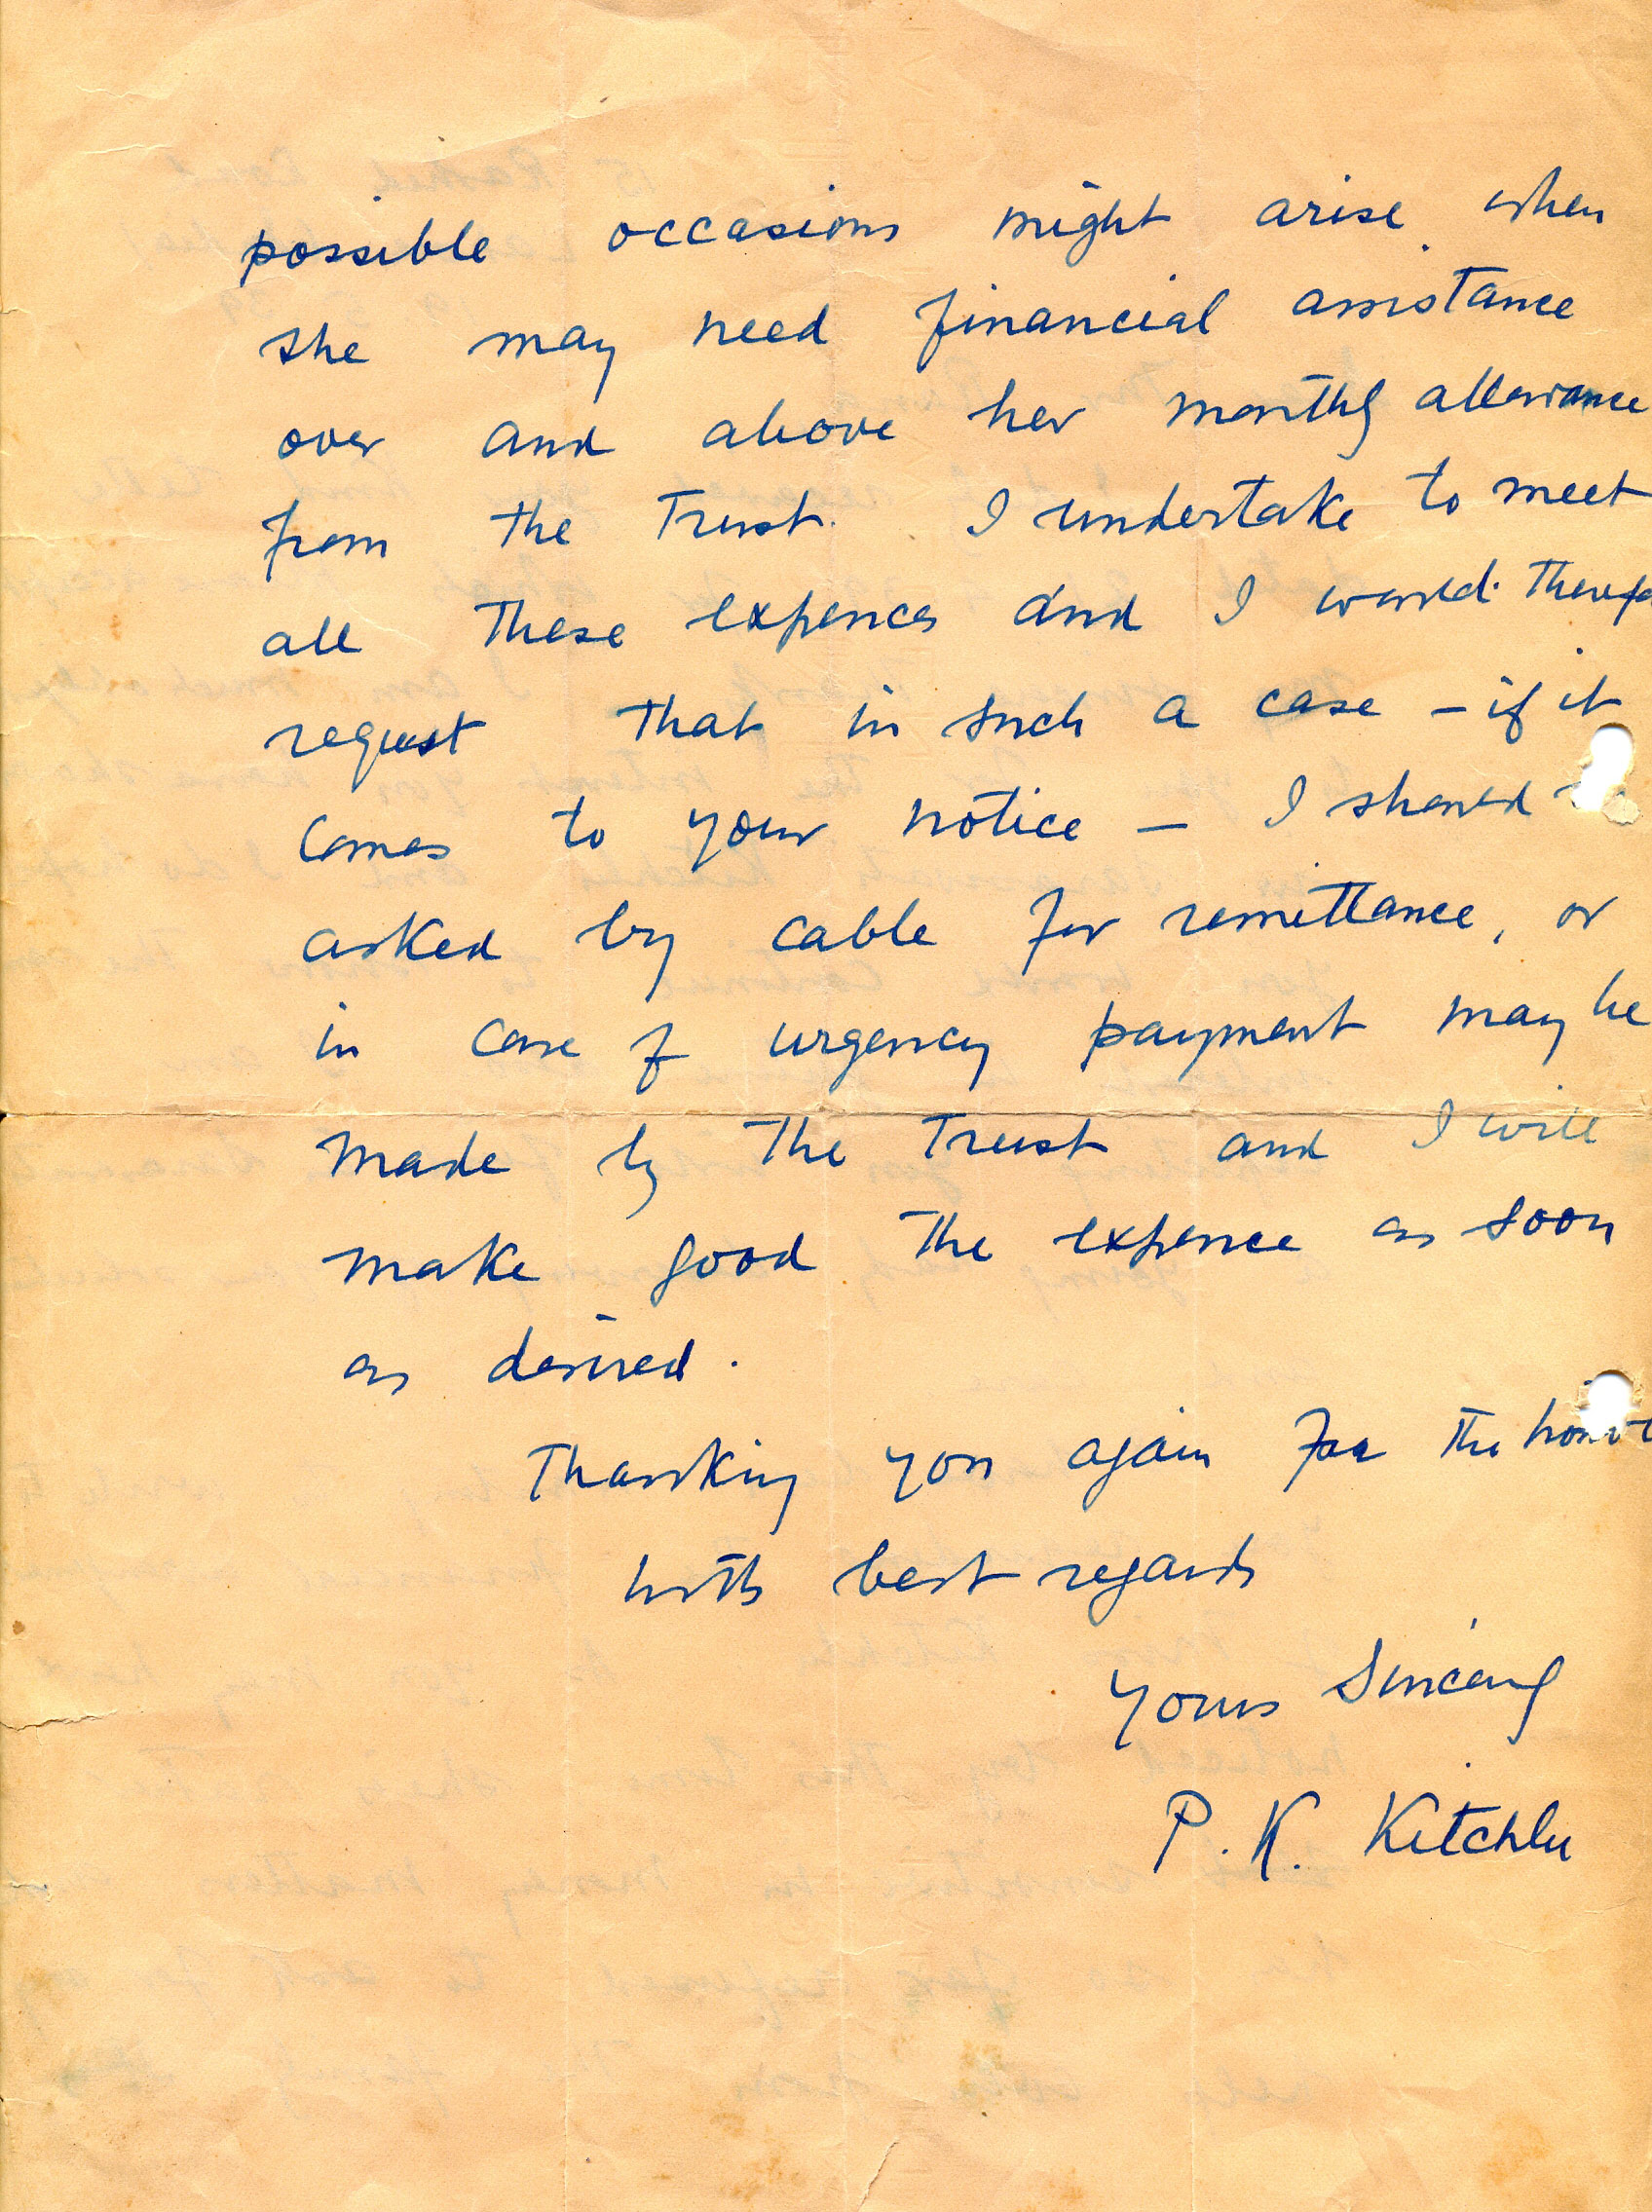 possible occasions might arise when
she may need financial assistance
over and above her monthly allowance
from the Trust. I undertake to meet
all these expences and I would
request that in such a case – if it
comes to your notice – I should
asked by cable for remittance, or
in case of urgency payment may be
made by the Trust and I will
make good the expence as soon
as desired.
Thanking you again for the
with best regards
Yours Sincerely
P. K. Kitchlu